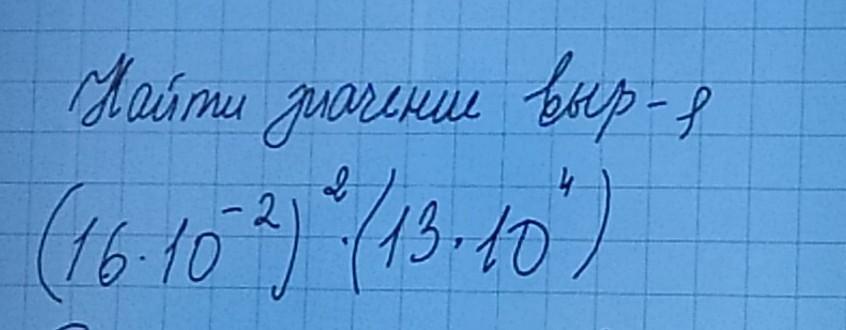 Найти значение выр-я
(16·10⁻²)²·(13·10⁴)